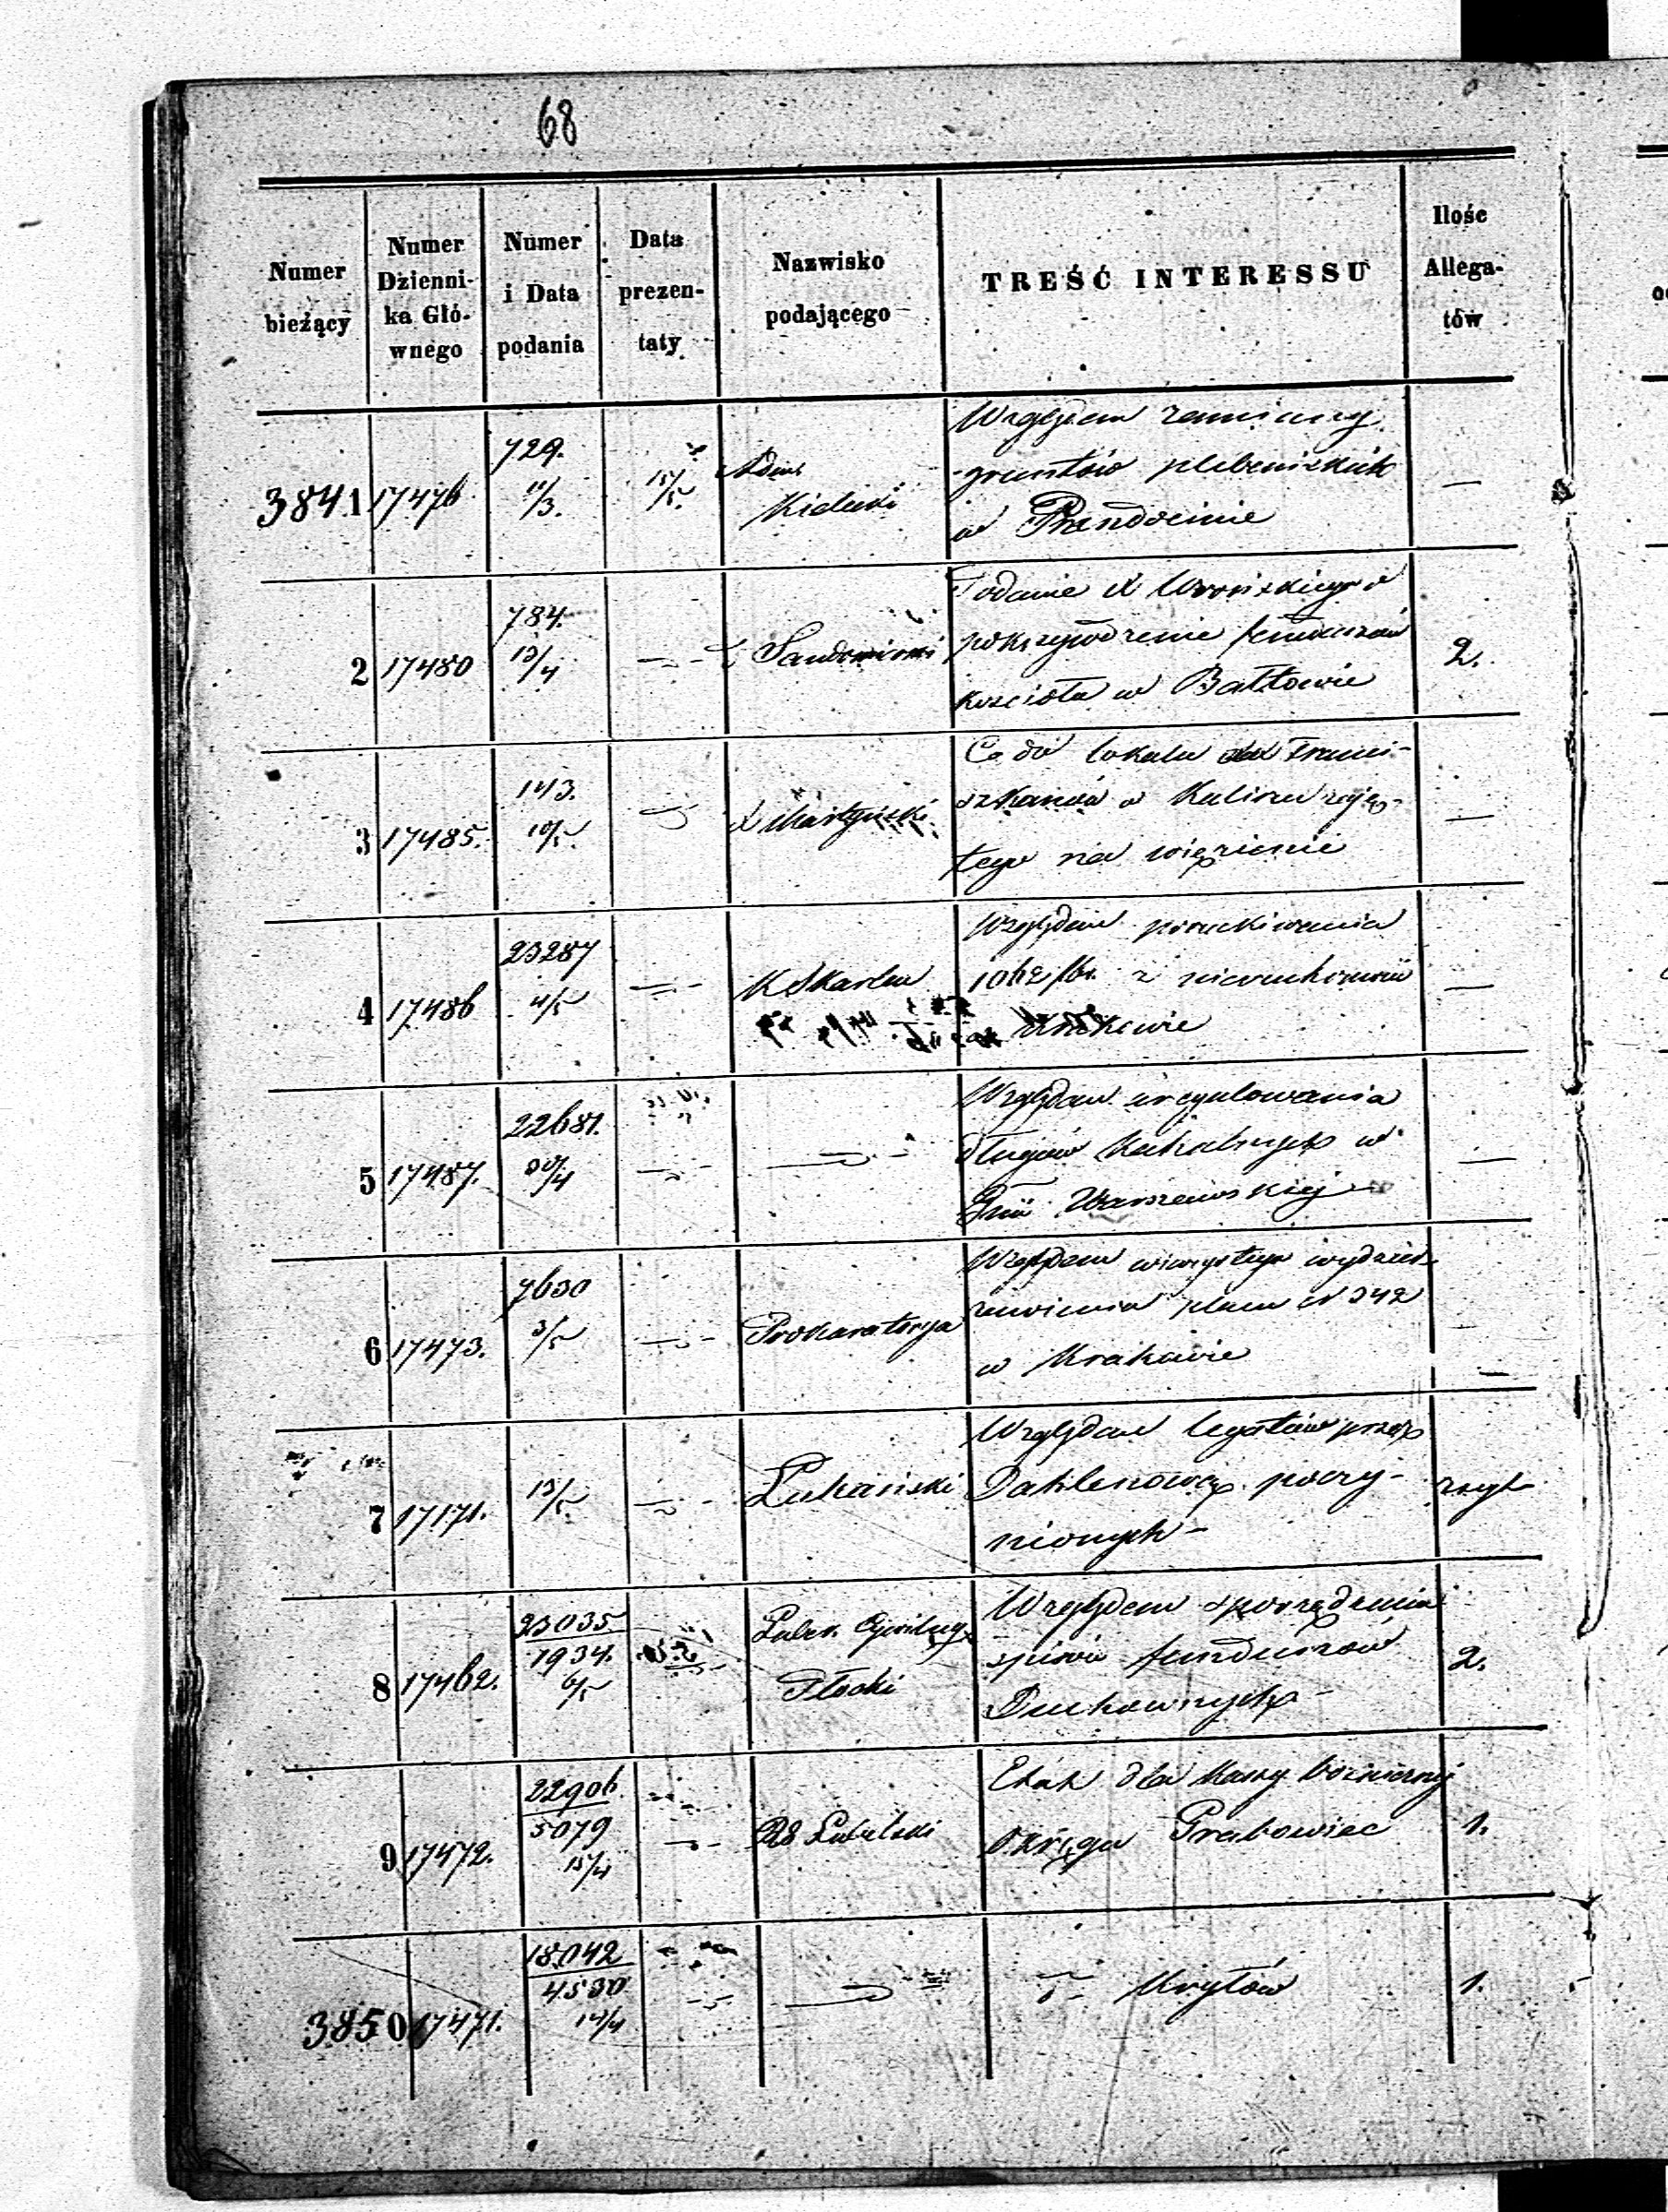 68
Numer bieżący
Numer Dzienni-ka Głó-wnego
Numer i Data podania
Data prezen-taty
Nazwisko podającego
TREŚĆ INTERESSU
Ilość Allega-tów
3841 17476 729. 15/5. Kielecki Względem zamiany
gruntów plebańskich —
w Prandocinie
2 17480 784. 13/4 Podanie X Wrońskiego o
pokrzywdzenie funduszów 2.
kościoła w Bałtowie
3 17485. 143. 10/5. Co do lokalu Franci-
szkanów w Kaliszu zaję-
tego na więzienie —
4 17486 23287 4/5 K Skarbu Względem poszukiwania
z nieruchomości —
Krakowie
5 17487. 22681. 30/4 Względem uregulowania
długów Kahalnych w —
Gnii Warszawskiej
6 17473. 7630 3/5 Prokuratorya Względem wieczystego wydzier-
żawienia placu N 342
w Krakowie —
7 17171. 13/5 Łukasiński Względem legatów przez
poczy-
nionych -
8 17462. 23035 1934. 6/5 Płocki Względem sporządzenia
spisów funduszów 2.
Duchownych -
9 17472. 22906. 5079 15/4 Lubelski Etat dla Kassy
Okręgu Grabowiec 1.
3850 17471. 18042 4530 14/4 Kryłów 1.